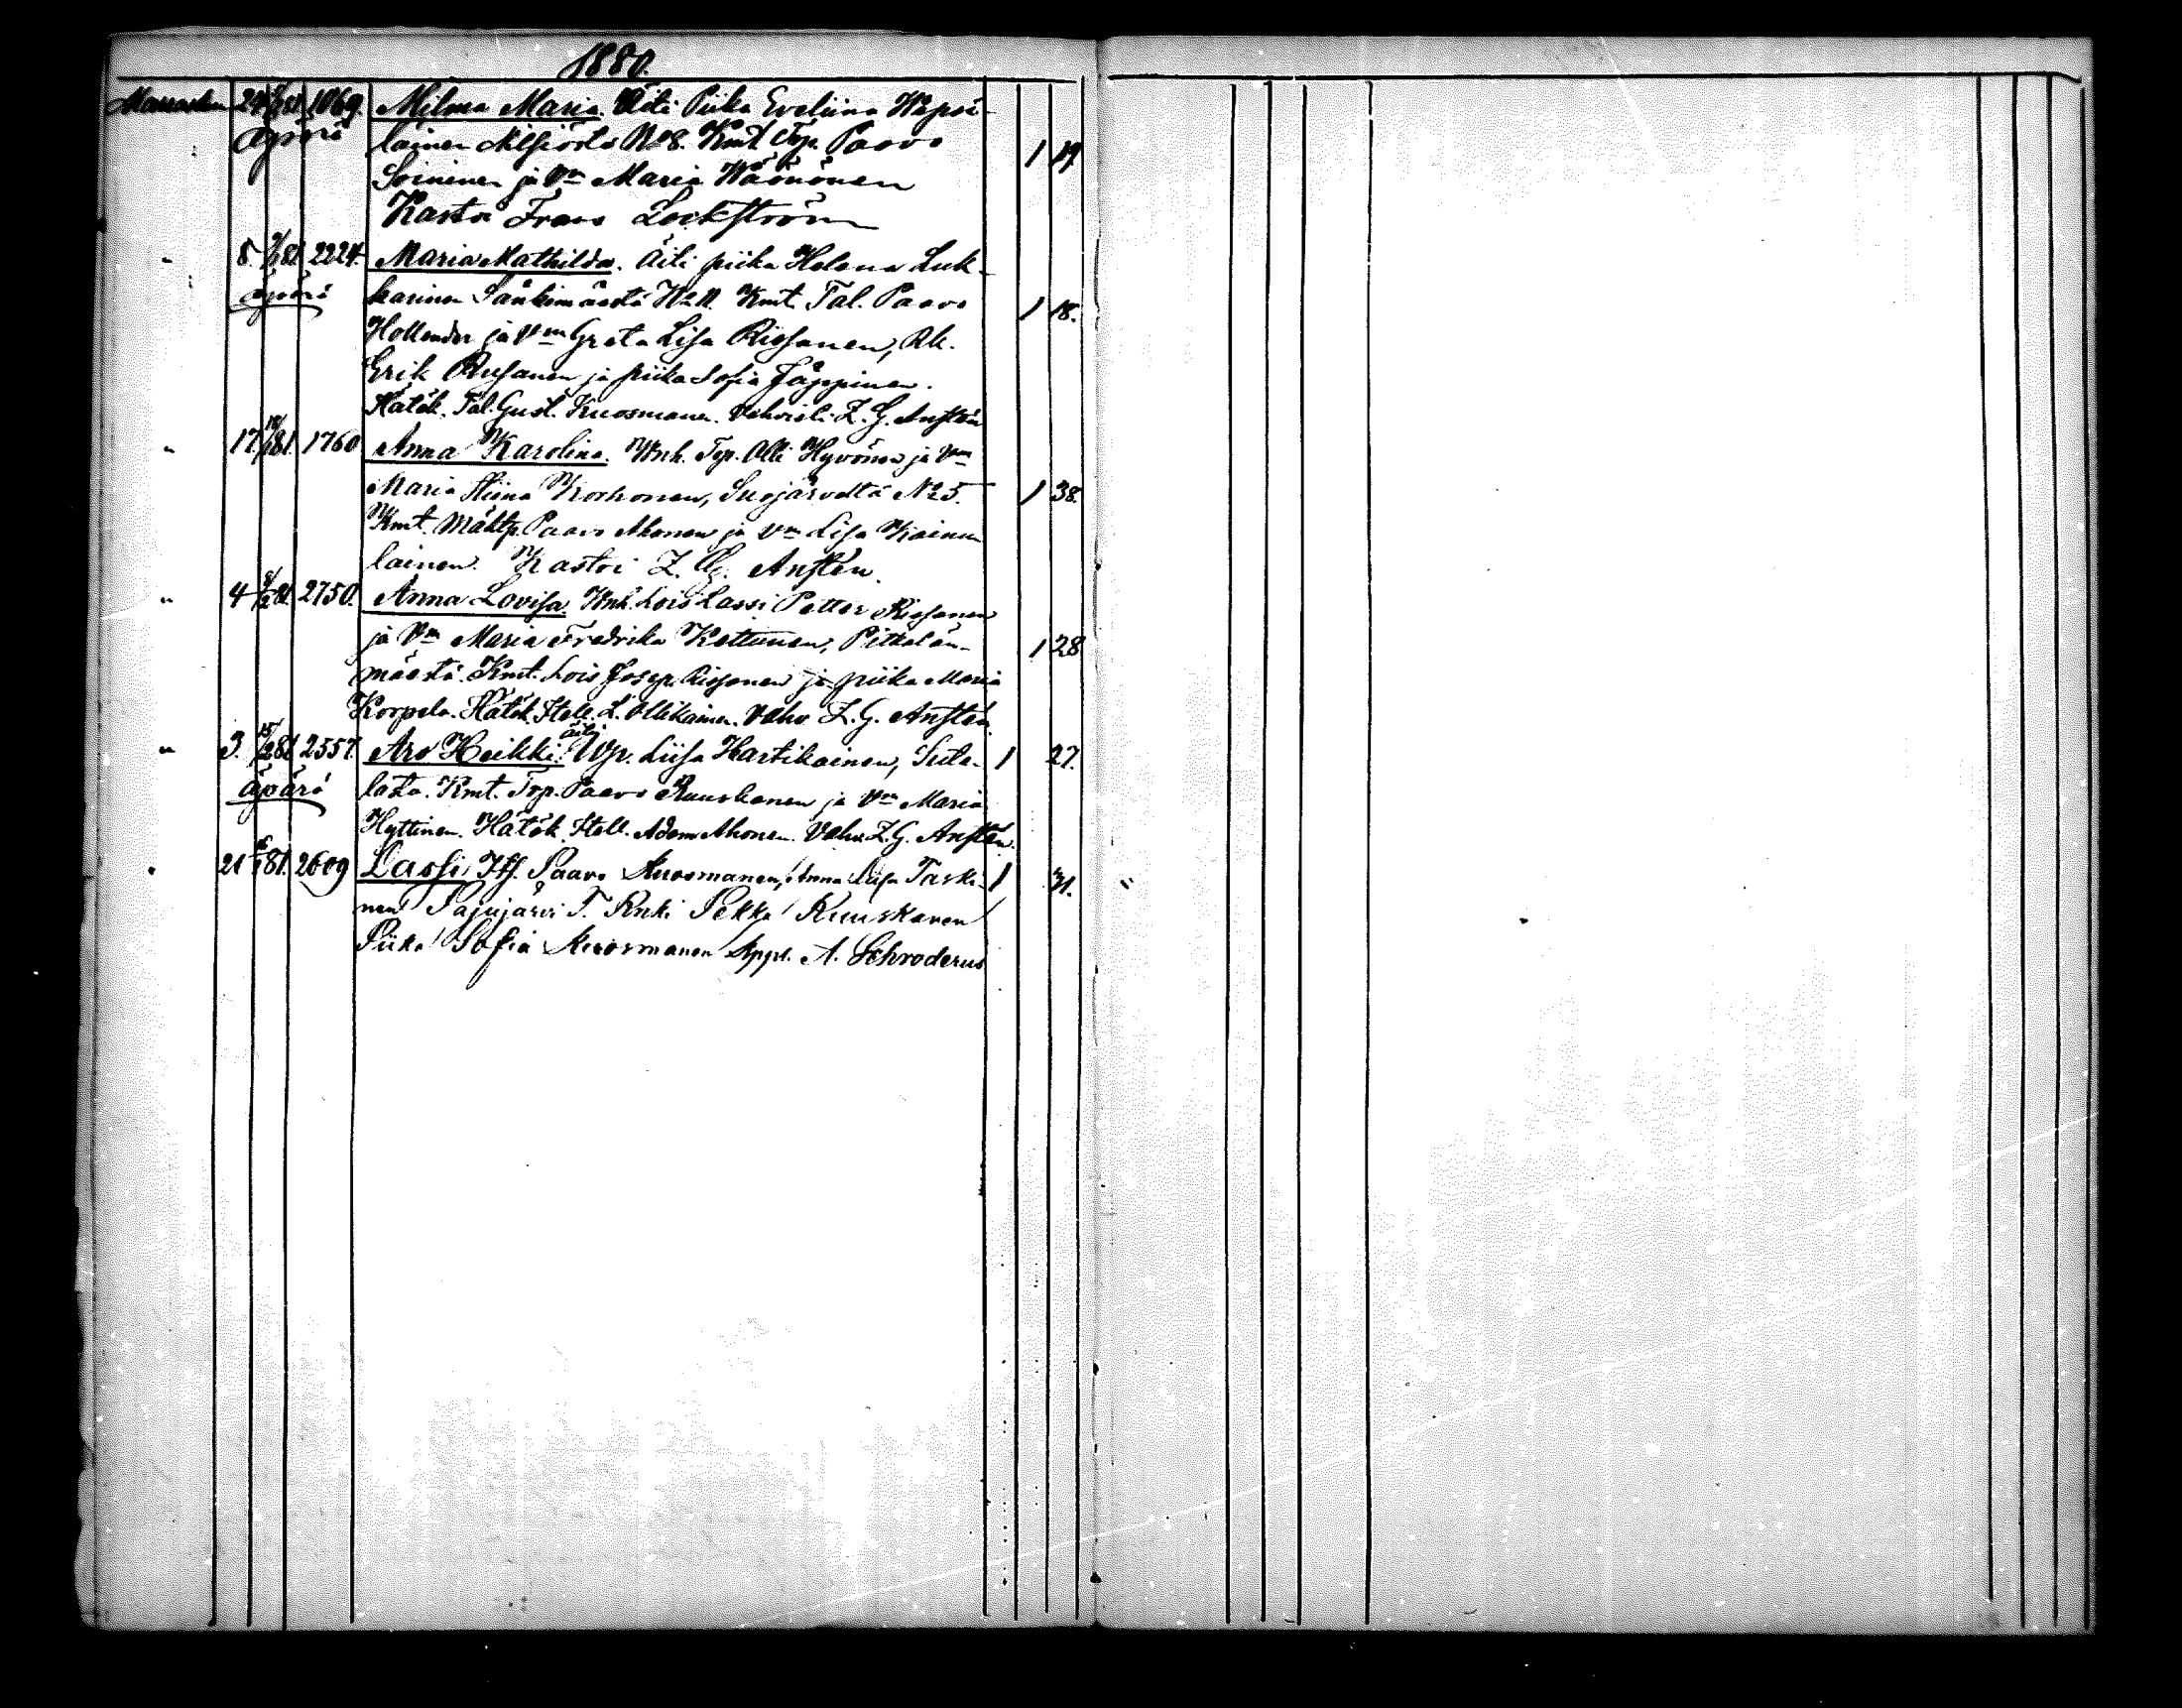 1880.
Marraskuu 29 /81. 1069. Milma Maria. Äiti Piika Eveliina Wepsä-
äpärä lainen Nilsiästä No 8. Kmt Trp. Paavo 1 19
Soininen ja Vm Maria Wäänänen
Kastoi Frans Lockström
" 8. /81 2224. Maria Mathilda. Äiti piika Helena Luk-
äpärä karinen Sänkimäestä No 11. Kmt. Tal. Paavo 1 18.
Hollender ja Vm Greta Lisa Rissanen, Rk.
Erik Rusanen ja piika Sofia Jäppinen.
Hätäk. Tal. Gust. Kuosmanen. Vahvisti Z. G. Anstén
" 17. 10/81. 1760 Anna Karolina. Wnh. Trp. Olli Hyvönen ja Vm
Maria Stiina Korhonen, Suojärveltä No 5. 1 38.
Kmt. Mäktp. Paavo Ahonen ja Vm Lisa Kainu
lainen. Kastoi Z. G. Anstén.
" 4 9/2 81. 2750. Anna Lovisa. Wnh. Lois Lassi Petter Rissanen
ja Vm Maria Fredrika Kettunen, Pitkälän- 1 28
mäestä. Kmt. Lois Josep. Rissanen ja piika Maria
Korpela. Hätäk. Itell. L. Ollikainen. Vahv. Z. G. Anstén.
" 3. 15/2 81 2557. Aro Heikki. Äiti Liisa Hartikainen, Siito- 1 27.
äpärä lasta. Kmt. Trp. Paavo Ruuskanen ja Vm Maria
Hyttinen. Hätäk. Itell. Adam Ahonen. Vahv. Z. G. Anstén.
" 21 /81. 2609 Lassi, Itf. Paavo Kuosmanen, Anna Liisa Taski- 1 31.
nen Pajujärvi T. Rnki Pekka Ruuskanen
Piika Sofia Kuosmanen Appl. A. Schroderus